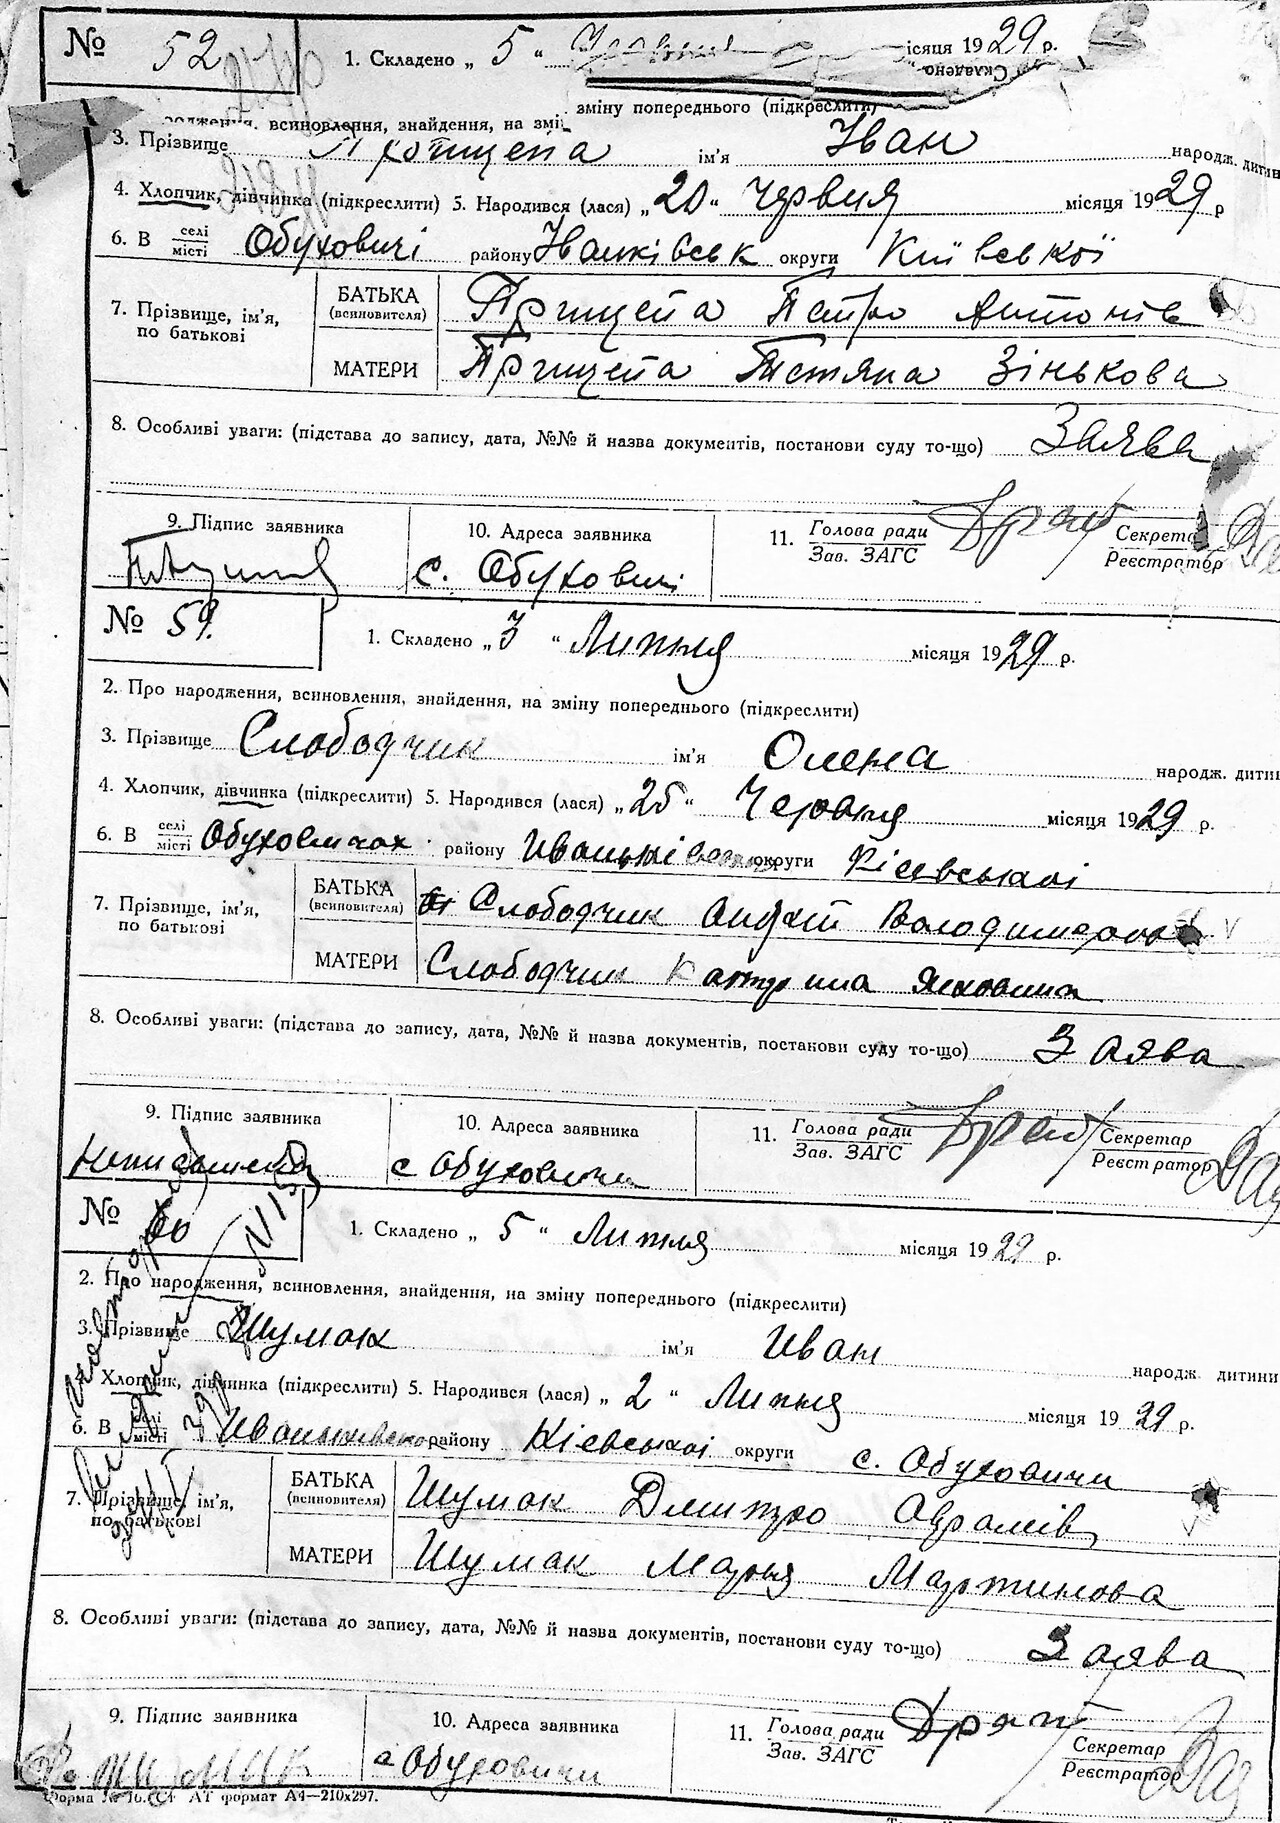 № 52 1. Складено „ 5 “ ісяця 1929 р.
Складено
зміну попереднього (підкреслити)
родження, всиновлення, знайдення, на змі
3. Прізвище ім'я Іван народж. дитин
4. Хлопчик, дівчинка (підкреслити) 5. Народився (лася) „ 20 “ червня місяця 1929 р
6. В селі місті Обуховичі району Іванківськ округи Київської
7. Прізвище, ім'я, по батькові
БАТЬКА (всиновителя) Прищепа Петро Антонів
МАТЕРИ Прищепа Тетяна Зінькова
8. Особливі уваги: (підстава до запису, дата, №№ й назва документів, постанови суду то-що) Заява
9. Підпис заявника 10. Адреса заявника 11. Голова ради Зав. ЗАГС Секрета Реєстратор
с. Обуховичі
№ 59. 1. Складено „ 3 “ Липня місяця 1929 р.
2. Про народження, всиновлення, знайдення, на зміну попереднього (підкреслити)
3. Прізвище Слободчик ім'я Олена народж. дитин
4. Хлопчик, дівчинка (підкреслити) 5. Народився (лася) „ 25 “ Червня місяця 1929 р.
6. В селі місті Обуховичах району округи Кіевськоі
7. Прізвище, ім'я, по батькові
БАТЬКА (всиновителя) Слободчик
МАТЕРИ Слободчик Катерина Яковина
8. Особливі уваги: (підстава до запису, дата, №№ й назва документів, постанови суду то-що) Заява
9. Підпис заявника 10. Адреса заявника 11. Голова ради Зав. ЗАГС Секретар Реєстратор
с Обуховичи
№ 60 1. Складено „ 5 “ Липня місяця 1929 р.
2. Про народження, всиновлення, знайдення, на зміну попереднього (підкреслити)
3. Прізвище Шумак ім'я Иван народж дитини
4. Хлопчик, дівчинка (підкреслити) 5. Народився (лася) „ 2 “ Липня місяця 1929 р.
6. В місті району Кіевськоі округи с. Обуховичи
7. Прізвище, ім'я, по батькові
БАТЬКА (всиновителя) Шумак Дмитро Аврамів
МАТЕРИ Шумак Марія Мартинова
8. Особливі уваги: (підстава до запису, дата, №№ й назва документів, постанови суду то-що) Заява
9. Підпис заявника 10. Адреса заявника 11. Голова ради Зав. ЗАГС Секретар Реєстратор
с Обуховичи
АТ формат А4—210х297.